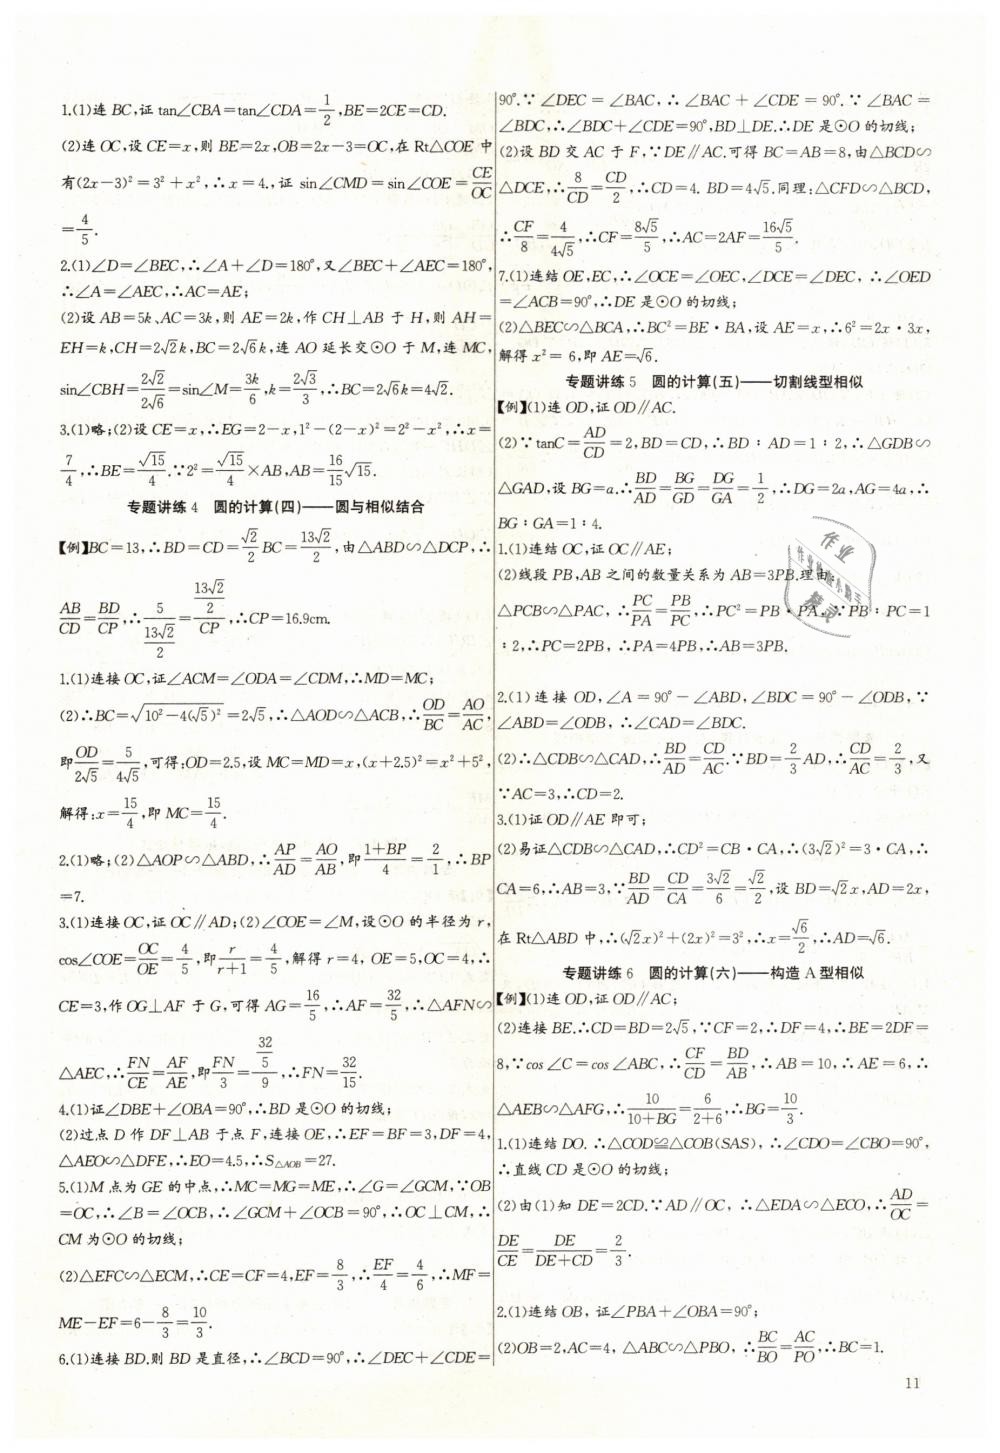 1.(1)连 BC,证 tan∠CBA=tan∠CDA=1/2,BE=2CE=CD.
(2)连 OC,设 CE=x,则 BE=2x,OB=2x-3=OC,在 Rt△COE 中
有(2x-3)²=3²+x²,∴x=4.,证 sin∠CMD=sin∠COE=CE/OC
=4/5.
2.(1)∠D=∠BEC,∴∠A+∠D=180°,又∠BEC+∠AEC=180°,
∴∠A=∠AEC,∴AC=AE;
(2)设 AB=5k、AC=3k,则 AE=2k,作 CH⊥AB 于 H,则 AH=
EH=k,CH=2√2k,BC=2√6k,连 AO 延长交⊙O 于 M,连 MC,
sin∠CBH=2√2/2√6=sin∠M=3k/6,k=2√3/3,∴BC=2√6k=4√2.
3.(1)略;(2)设 CE=x,∴EG=2-x,1²-(2-x)²=2²-x²,∴x=
7/4,∴BE=√15/4.∵2²=√15/4×AB,AB=16/15√15.
专题讲练 4 圆的计算(四)——圆与相似结合
【例】BC=13,∴BD=CD=√2/2BC=13√2/2,由△ABD∽△DCP,∴
AB/CD=BD/CP,∴5/(13√2/2)=(13√2/2)/CP,∴CP=16.9cm.
1.(1)连接 OC,证∠ACM=∠ODA=∠CDM,∴MD=MC;
(2)∴BC=√(10²-4(√5)²)=2√5,∴△AOD∽△ACB,∴OD/BC=AO/AC,
即OD/2√5=5/4√5,可得:OD=2.5,设 MC=MD=x,(x+2.5)²=x²+5²,
解得:x=15/4,即 MC=15/4.
2.(1)略;(2)△AOP∽△ABD,∴AP/AD=AO/AB,即(1+BP)/4=2/1,∴BP
=7.
3.(1)连接 OC,证 OC∥AD;(2)∠COE=∠M,设⊙O 的半径为 r,
cos∠COE=OC/OE=4/5,即r/(r+1)=4/5,解得 r=4, OE=5,OC=4,∴
CE=3,作 OG⊥AF 于 G,可得 AG=16/5,∴AF=32/5,∴△AFN∽
△AEC,∴FN/CE=AF/AE,即FN/3=(32/5)/9,∴FN=32/15.
4.(1)证∠DBE+∠OBA=90°,∴BD 是⊙O 的切线;
(2)过点 D 作 DF⊥AB 于点 F,连接 OE,∴EF=BF=3,DF=4,
△AEO∽△DFE,∴EO=4.5,∴S△AOB=27.
5.(1)M 点为 GE 的中点,∴MC=MG=ME,∴∠G=∠GCM,∵OB
=OC,∴∠B=∠OCB,∴∠GCM+∠OCB=90°,∴OC⊥CM,∴
CM 为⊙O 的切线;
(2)△EFC∽△ECM,∴CE=CF=4,EF=8/3,∴EF/4=4/6,∴MF=
ME-EF=6-8/3=10/3.
6.(1)连接 BD.则 BD 是直径,∴∠BCD=90°,∴∠DEC+∠CDE=
90°.∵∠DEC=∠BAC,∴∠BAC+∠CDE=90°.∵∠BAC=
∠BDC,∴∠BDC+∠CDE=90°,BD⊥DE.∴DE 是⊙O 的切线;
(2)设 BD 交 AC 于 F,∵DE∥AC.可得 BC=AB=8,由△BCD∽
△DCE,∴8/CD=CD/2,∴CD=4. BD=4√5.同理:△CFD∽△BCD,
∴CF/8=4/4√5,∴CF=8√5/5,∴AC=2AF=16√5/5.
7.(1)连结 OE,EC,∴∠OCE=∠OEC,∠DCE=∠DEC, ∴∠OED
=∠ACB=90°,∴DE 是⊙O 的切线;
(2)△BEC∽△BCA,∴BC²=BE·BA,设 AE=x,∴6²=2x·3x,
解得 x²=6,即 AE=√6.
专题讲练 5 圆的计算(五)——切割线型相似
【例】(1)连 OD,证 OD∥AC.
(2)∵tanC=AD/CD=2,BD=CD,∴BD:AD=1:2,∴△GDB∽
△GAD,设 BG=a.∴BD/AD=BG/GD=DG/GA=1/2,∴DG=2a,AG=4a,∴
BG:GA=1:4.
1.(1)连结 OC,证 OC∥AE;
(2)线段 PB,AB 之间的数量关系为 AB=3PB.理由:
△PCB∽△PAC, ∴PC/PA=PB/PC,∴PC²=PB·PA,∵PB:PC=1
:2,∴PC=2PB, ∴PA=4PB,∴AB=3PB.
2.(1)连接 OD,∠A=90°-∠ABD,∠BDC=90°-∠ODB,∵
∠ABD=∠ODB, ∴∠CAD=∠BDC.
(2)∴△CDB∽△CAD,∴BD/AD=CD/AC.∵BD=2/3AD,∴CD/AC=2/3,又
∵AC=3,∴CD=2.
3.(1)证 OD∥AE 即可;
(2)易证△CDB∽△CAD,∴CD²=CB·CA,∴(3√2)²=3·CA,∴
CA=6,∴AB=3,∵BD/AD=CD/CA=3√2/6=√2/2,设 BD=√2x,AD=2x,
在 Rt△ABD 中,∴(√2x)²+(2x)²=3²,∴x=√6/2,∴AD=√6.
专题讲练 6 圆的计算(六)——构造 A 型相似
【例】(1)连 OD,证 OD∥AC;
(2)连接 BE.∴CD=BD=2√5,∵CF=2,∴DF=4,∴BE=2DF=
8,∵cos∠C=cos∠ABC,∴CF/CD=BD/AB,∴AB=10,∴AE=6,∴
△AEB∽△AFG,∴10/(10+BG)=6/(2+6),∴BG=10/3.
1.(1)连结 DO. ∴△COD≌△COB(SAS), ∴∠CDO=∠CBO=90°,
∴直线 CD 是⊙O 的切线;
(2)由(1)知 DE=2CD.∵AD∥OC, ∴△EDA∽△ECO,∴AD/OC=
DE/CE=DE/(DE+CD)=2/3.
2.(1)连结 OB, 证∠PBA+∠OBA=90°;
(2)OB=2,AC=4, △ABC∽△PBO, ∴BC/BO=AC/PO,∴BC=1.
11